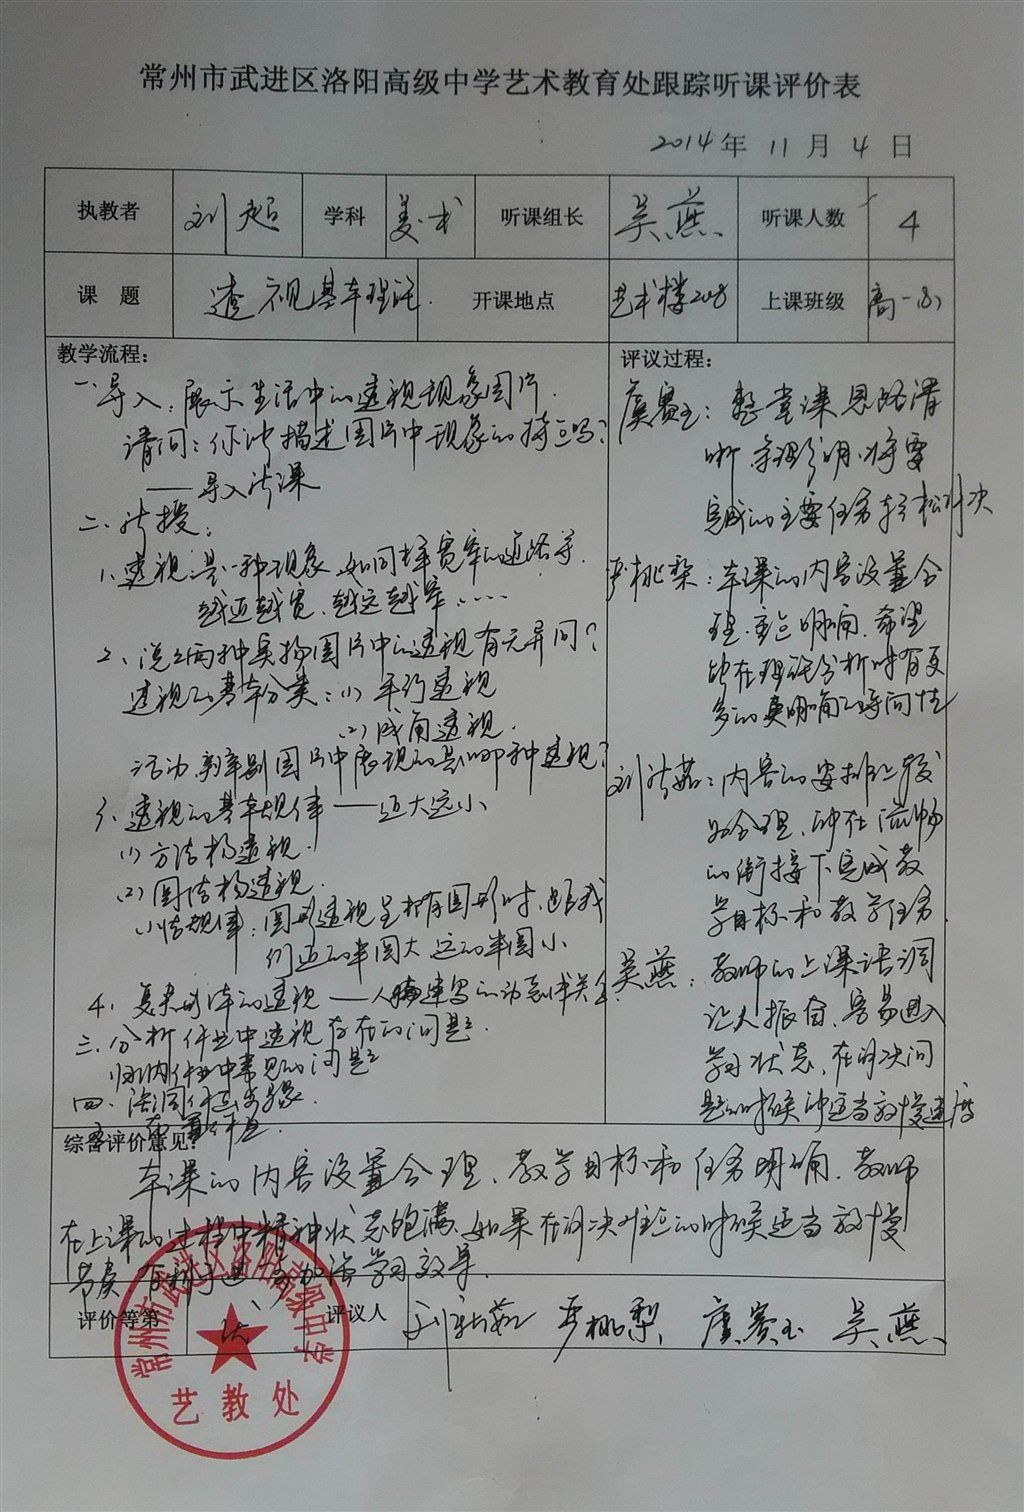 常州市武进区洛阳高级中学艺术教育处跟踪听课评价表
2014年 11 月 4 日
执教者 刘超 学科 美术 听课组长 吴燕 听课人数 4
课 题 透视基本理论 开课地点 艺术楼208 上课班级 高一(8)
教学流程:
一、导入:展示生活中的透视现象图片.
请问:你能描述图片中现象的特点吗?
——导入新课
二、新授:
1、透视:是一种现象,如同样宽窄的道路等.
越近越宽、越远越窄……
2、说说两种实物图片中的透视有无异同?
透视的基本分类:(1) 平行透视
(2) 成角透视.
活动、辨别图片中展现的是哪种透视?
3、透视的基本规律——近大远小
(1) 方结构透视.
(2) 圆结构透视.
小结规律:圆形透视呈椭圆形时,距我
们近的半圆大 远的半圆小.
4、复杂形体的透视——人
三、分析作业中透视存在的问题.
归纳作业中常见的问题
四、
评议过程:
虞赛玉:整堂课思路清
晰 条理分明,将要
完成的主要任务轻松解决
严桃梨:本课的内容设置合
理.重点明确.希望
能在理论分析时有更
多的更明确的导向性
刘新茹:内容的安排比较
的合理、能在流畅
的衔接下完成教
学目标和教学任务.
吴燕:教师的上课语调
让人振奋、容易进入
学习状态、在解决问
题的时候能适当放慢速度
综合评价意见:
本课的内容设置合理、教学目标和任务明确.教师
在上课的过程中精神状态饱满、如果在解决难题的时候适当放慢
节奏 有利于进一步加强学习效率.
评价等第 优 评议人 刘新茹 严桃梨 虞赛玉 吴燕
常州市武进区洛阳高级中学
艺教处